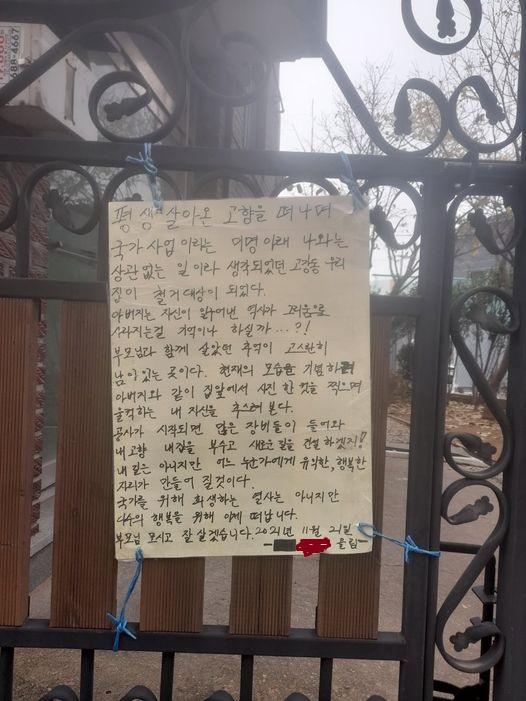 688-4667
평생 살아온 고향을 떠나며
국가사업이라는 미명아래 나와는
상관없는 일이라 생각되었던 고경동 우리
집이 철거대상이 되었다.
아버지는 자신이 읽어낸 역사가 그리움으로
사라지는걸 기억이나 하실까...?!
부모님과 함께 살았던 추억이 고스란히
남아있는 곳이다. 현재의 모습을 기념하려
아버지와 같이 집앞에서 사진 한컷을 찍으며
울컥하는 내 자신을 추스려 본다.
공사가 시작되면 많은 장비들이 들어와
내고향 내집을 부수고 새로운길을 건설하겠지!
내 집은 아니지만 어느 누군가에게 유익한, 행복한
자리가 만들어 질것이다.
국가를 위해 희생하는 열사는 아니지만
다수의 행복을 위해 이제 떠납니다.
부모님 모시고 잘 살겠습니다. 2021년 11월 21일
올림